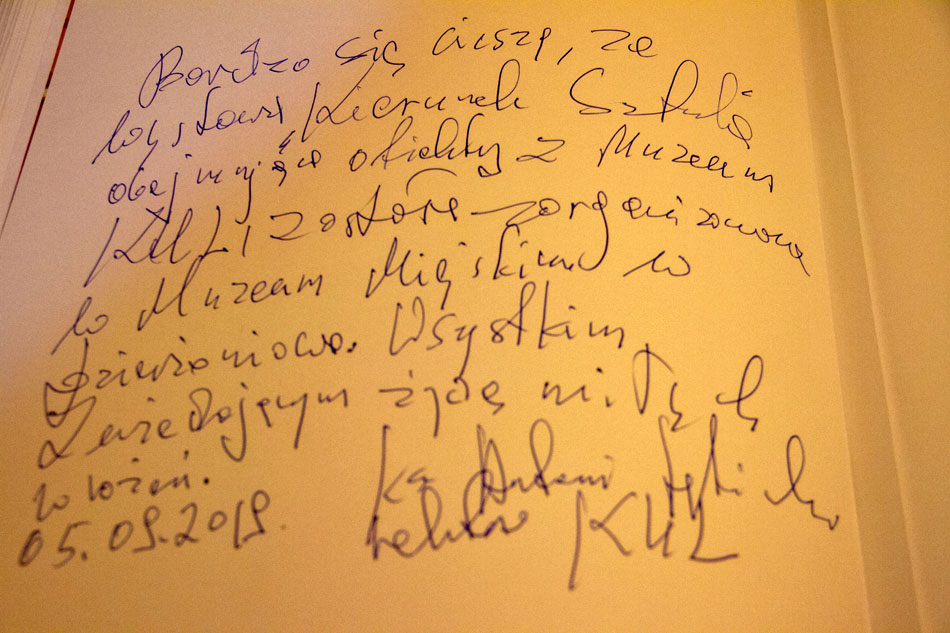 Bardzo się cieszę, że
wystawa Kierunek Sztuka
obejmująca obiekty z Muzeum
KUL, została zorganizowana
w Muzeum Miejskim w
Dzierżoniowie. Wszystkim
Zwiedzającym życzę miłych
wrażeń. ks. Antoni Dębiński
05.09.2019. rektor KUL